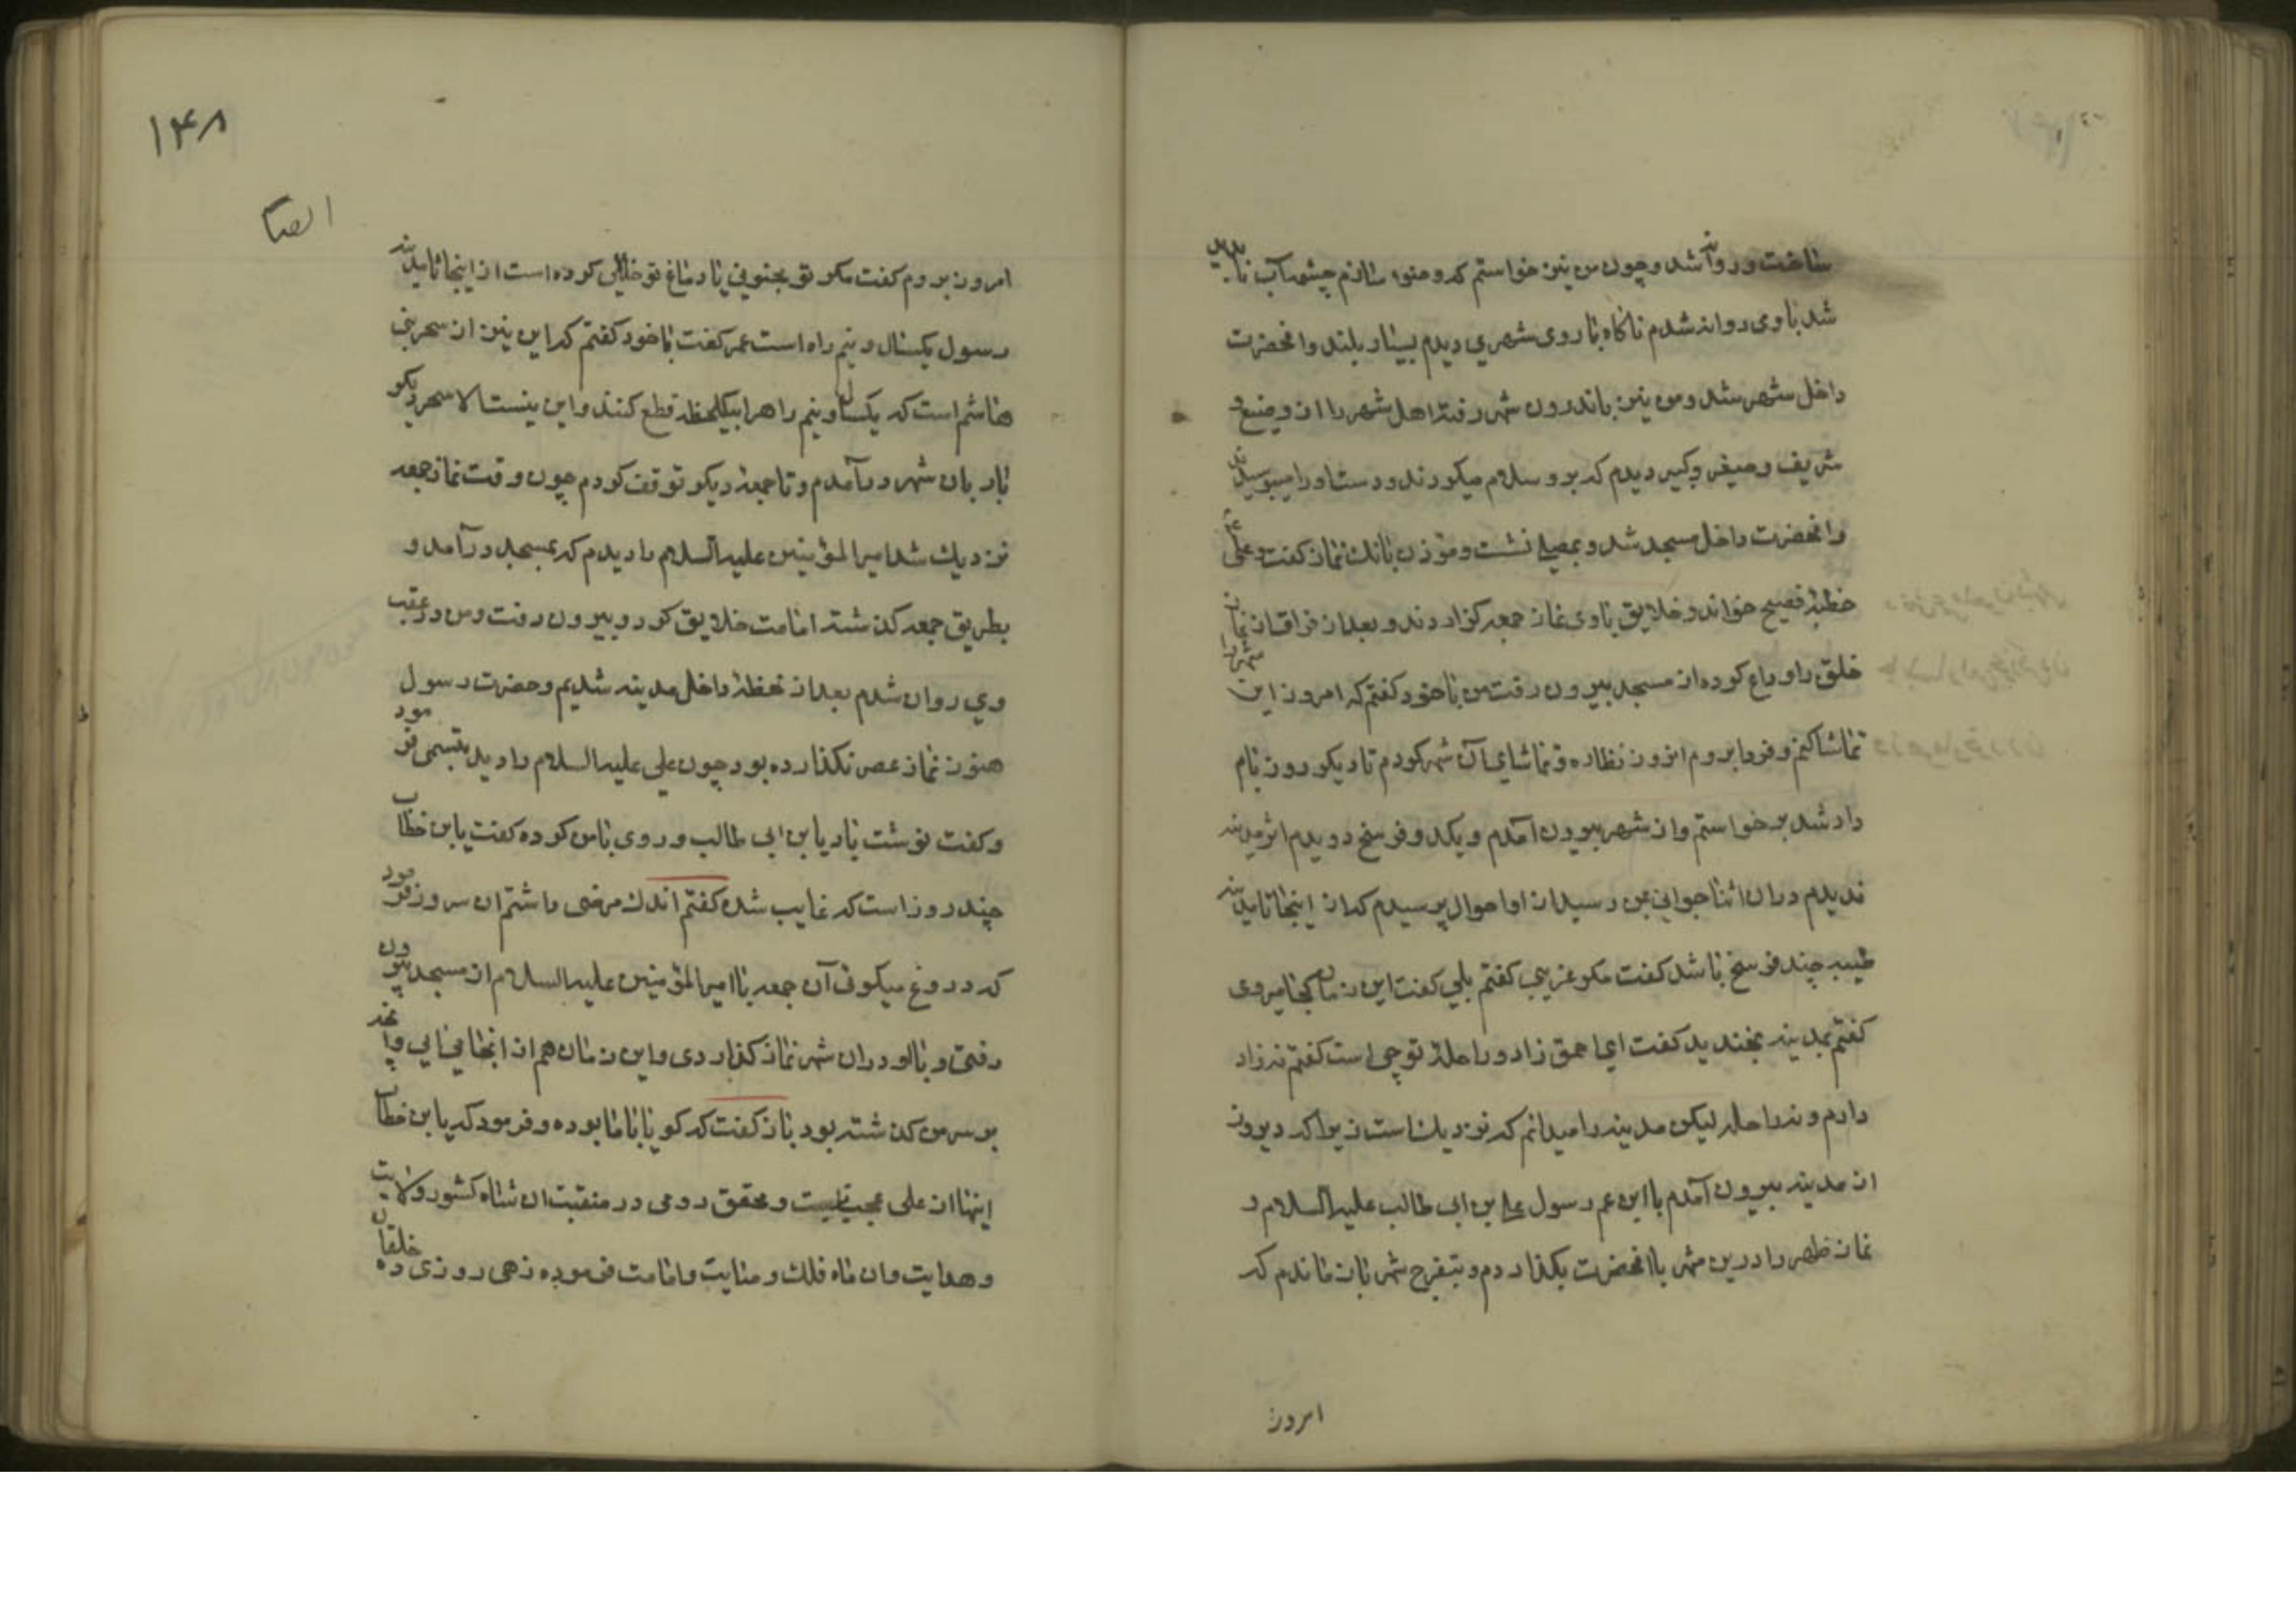 ساخت و روانه شد و چون من نیز خواستم که وضو سازم چشمه آب ناپدید
شد با وی روانه شدم ناکاه با روی شهری دیدم بسیار بلند وانحضرت
داخل شهر شد و من نیز باندرون شهر رفته اهل شهر را از وضیع و
شریف و صغیر و کبیر دیدم که برو سلام میکردند و دست او را میبوسیدند
وانحضرت داخل مسجد شد و بمصلی نشست و موذن بانک نماز کفت و علی ع
خطبهٔ فصیح خواند و خلایق با وی نماز جمعه کزاردند و بعد از فراق از نماز
خلق را وداع کرده از مسجد بیرون رفت من با خود کفتم که امروز این شهر را
تماشا کنم و فردا بروم انروز نظاره و تماشای آن شهر کردم تا دیکر روز بام
داد شد برخواستم و از شهر بیرون آمدم و یکدو فرسخ دویدم اثر مدینه
ندیدم دران اثنا جوانی بمن رسید از او احوال پرسیدم که از اینجا تا مدینه
طیبه چند فرسخ باشد کفت مکر غریبی کفتم بلی کفت این زمان کجا میروی
کفتم بمدینه بخندید کفت ای احمق زاد و راحلهٔ تو چی است کفتم نه زاد
دارم و نه راحله لیکن مدینه را میدانم که نزدیک است زیرا که دیروز
از مدینه بیرون آمدم با ابن عم رسول علی بن ابی طالب علیه السلام و
نماز ظهر را درین شهر با انحضرت بکذاردم و بتفرج شهر باز ماندم که
امروز
۱۴۸
امروز بروم کفت مکر تو مجنونی یا دماغ تو خللی کرده است از اینجا تا مدینه
رسول یکسال و نیم راه است عمر کفت با خود کفتم که این نیز از سحر بنی
هاشم است که یکسال و نیم راه را بیکلحظه قطع کنند و این نیست الا سحر دیکر
بار بان شهر درآمدم و تا جمعهٔ دیکر توقف کردم چون وقت نماز جمعه
نزدیک شد امیر المؤمنین علیه السلام را دیدم که بمسجد درآمد و
بطریق جمعه کذشته امامت خلایق کرد و بیرون رفت و من در عقب
وی روان شدم بعد از لحظهٔ داخل مدینه شدیم و حضرت رسول
هنوز نماز عصر نکذارده بود چون علی علیه السلام را دید تبسمی فرمود
و کفت خوشت باد یا بن ابی طالب و روی با من کرده کفت یا بن خطاب
چند روز است که غایب شدهٔ کفتم اندک مرضی داشتم ان سرور فرمود
که دروغ میکوئی آن جمعه با امیر المؤمنین علیه السلام از مسجد بیرون
رفتی و با او دران شهر نماز کذاردی و این زمان هم از انجا می آیی و آنچه
بر سر من کذشته بود باز کفت که کویا با ما بوده و فرمود که یا بن خطاب
اینها از علی عجب نیست و محقق رومی در منقبت ان شاه کشور ولایت
و هدایت وان ماه فلک و امامت فرموده زهی روزی ده خلقان